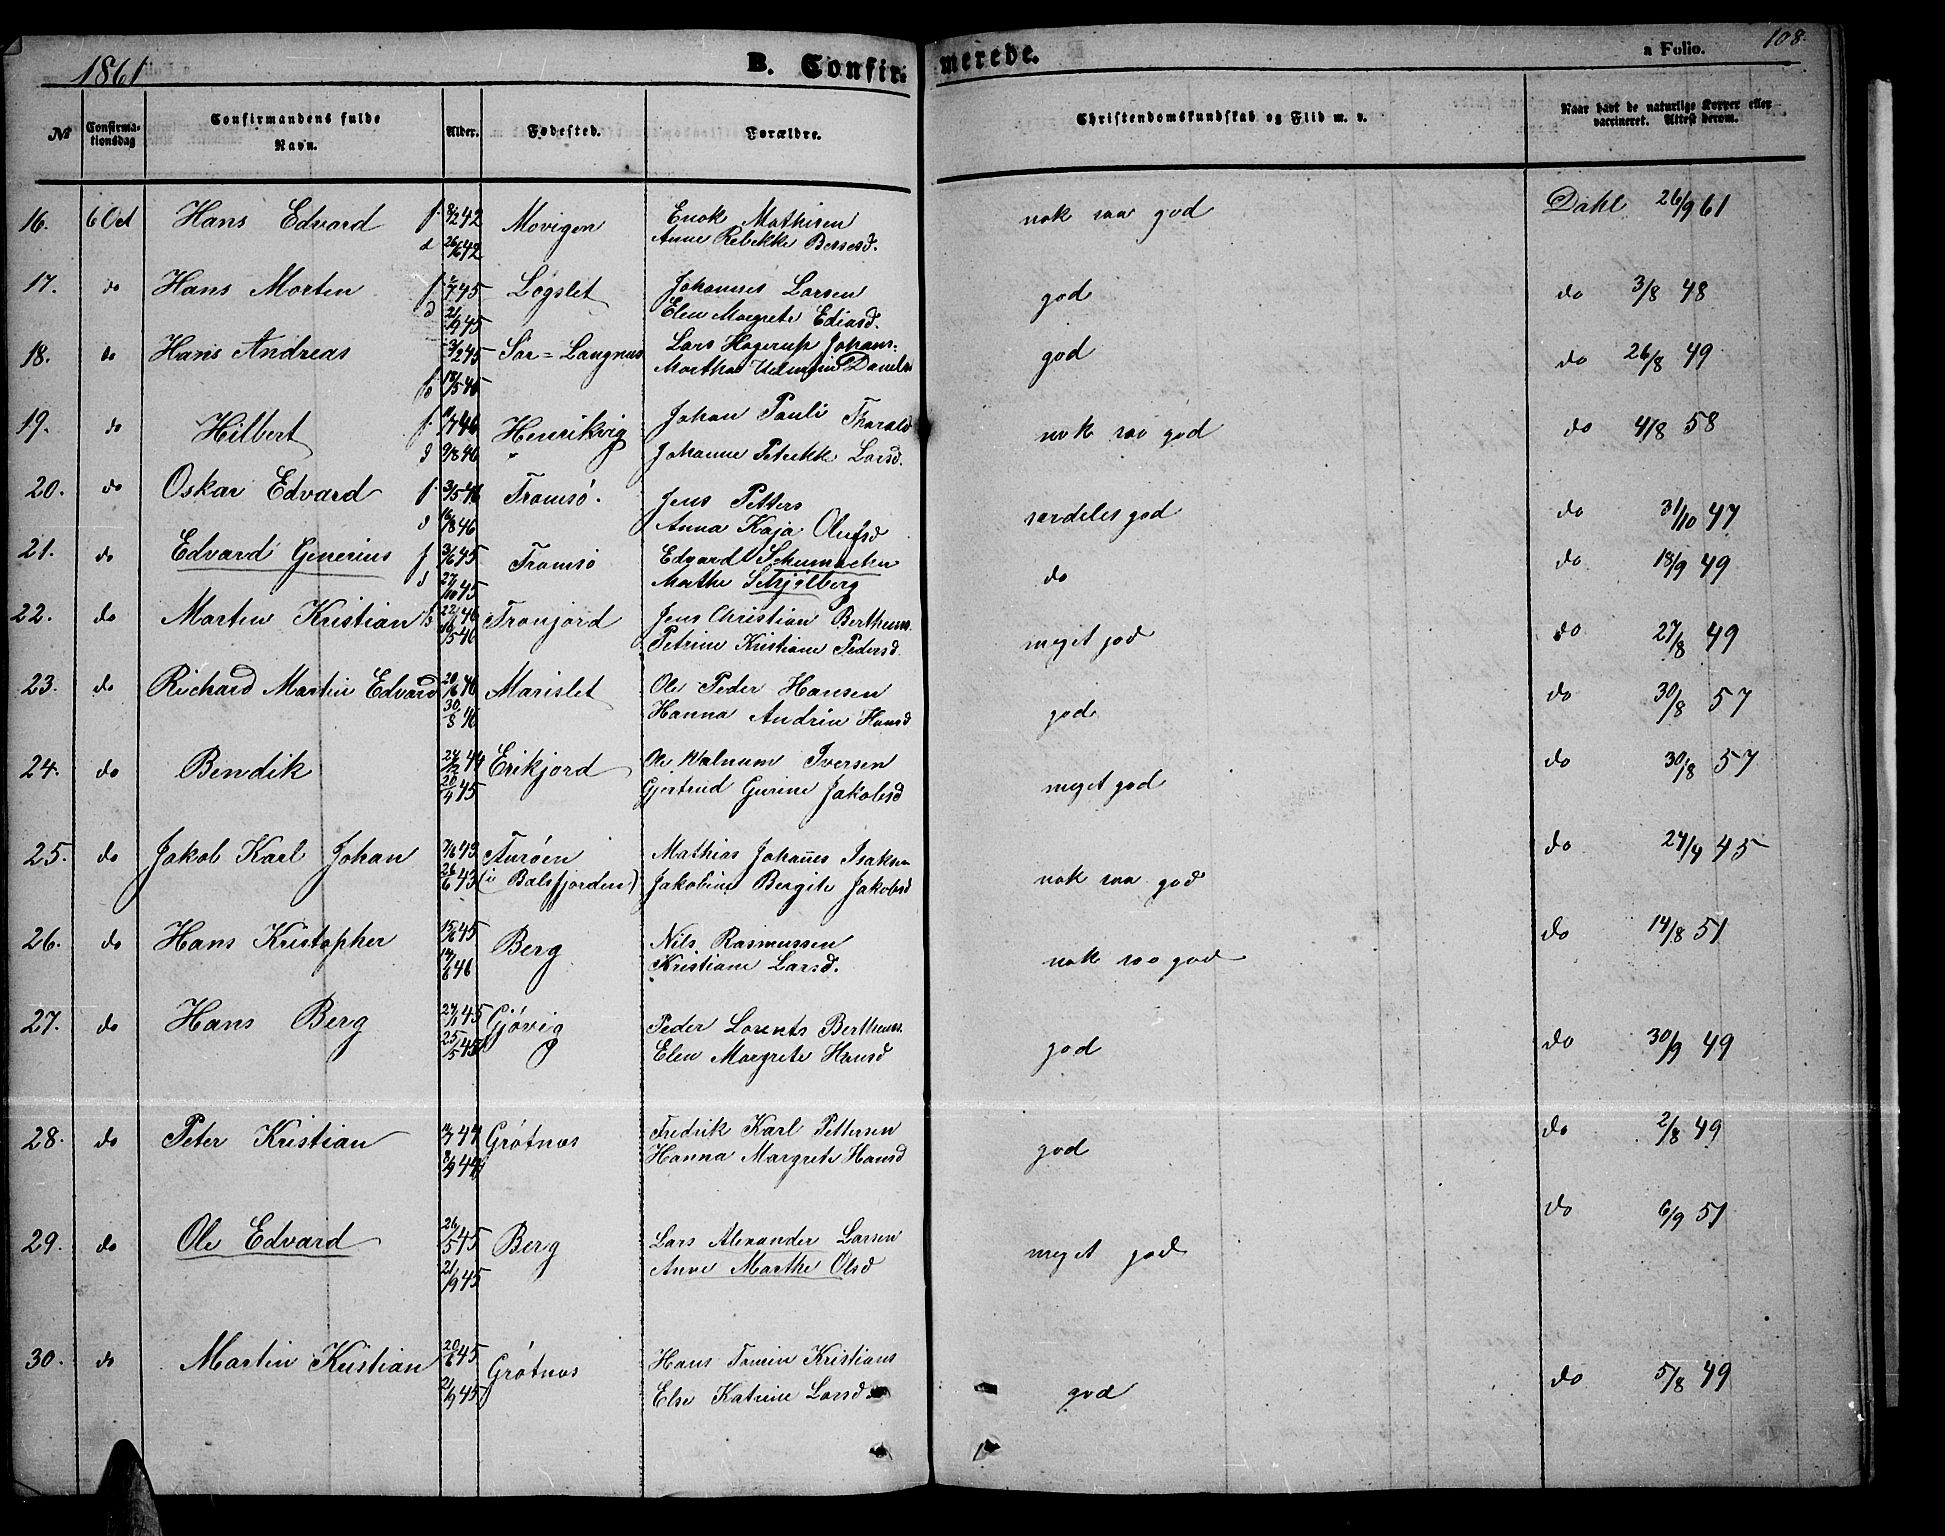 1861 B. Confirmerede. a Folio. 108.
№ Confirmationsdag Confirmandens fulde Navn. Alder. Fødested. Forældre. Christendomskundskab og Flid m. v. Naar havt de naturlige Kopper eller vaccineret. Attest derom.
16. 6 Oct Hans Edvard f. 8/2 42 Movigen Enok Mathisen nok saa god Dahl 26/9 61
d 26/6 42 Anne Rebekke Bersesd.
17. do Hans Morten f 2/7 45 Løgslet Johannes Larsen god do 3/8 48
d 21/9 45 Elen Margrete Ediasd.
18. do Hans Andreas 3/2 45 Sør=Langnus Lars Hagerup Johans: god do 26/8 49
18/5 46 Martha
19. do Hilbert f. 1/7 46 Henrikvig Johan Pauli Tharald nok saa god do 4/8 58
d 9/8 46 Johanne Petrikke Larsd.
20. do Oskar Edvard f. 3/5 46 Tromsø. Jens Petters særdeles god do 31/10 47
d 16/8 46 Anna Kaja Olufsd
21. do Edvard Generius f 3/6 45 Tromsø Edvard Schumacher do do 18/9 49
d 27/10 45 Marthe Schjølberg
22. do Martin Kristian 22/1 46 Tronjord Jens Christian Bertheus. meget god do 27/8 49
10/5 46 Petrine Kristiane Pedersd.
23. do Richard Martin Edvard 20/6 46 Marislet Ole Peder Hansen god do 30/8 57
30/8 46 Hanna Andrin Hansd
24. do Bendik 24/12 44 Erikjord Ole Walnum Iversen meget god do 30/8 57
20/4 45 Gjertrud Gurine Jakobsd
25. do Jakob Karl Johan 7/6 43 Turøen Mathias Johañes Isaksn nok saa god do 27/4 45
26/6 43 (i Balsfjorden) Jakobine Bergite Jakobsd
26. do Hans Kristopher 15/6 45 Berg Nils Rasmussen nok saa god do 14/8 51
14/6 46 Kristiane Larsd.
27. do Hans Berg 24/1 45 Gjøvig Peder Lorents Bertheus. god do 30/9 49
25/5 45 Elen Margrete Hansd
28. do Peter Kristian 12/7 44 Grøtnæs Fredrik Karl Pettersen god do 2/8 49
8/9 44 Hanna Margrete Hansd
29. do Ole Edvard 26/5 45 Berg Lars Alexander Larsen meget god do 6/9 51
21/9 45 Anne Marthe Olsd
30. do Martin Kristian 20/6 45 Grøtnæs Hans Tomin Kristians god do 5/8 49
21/9 45 Else Katrine Larsd.